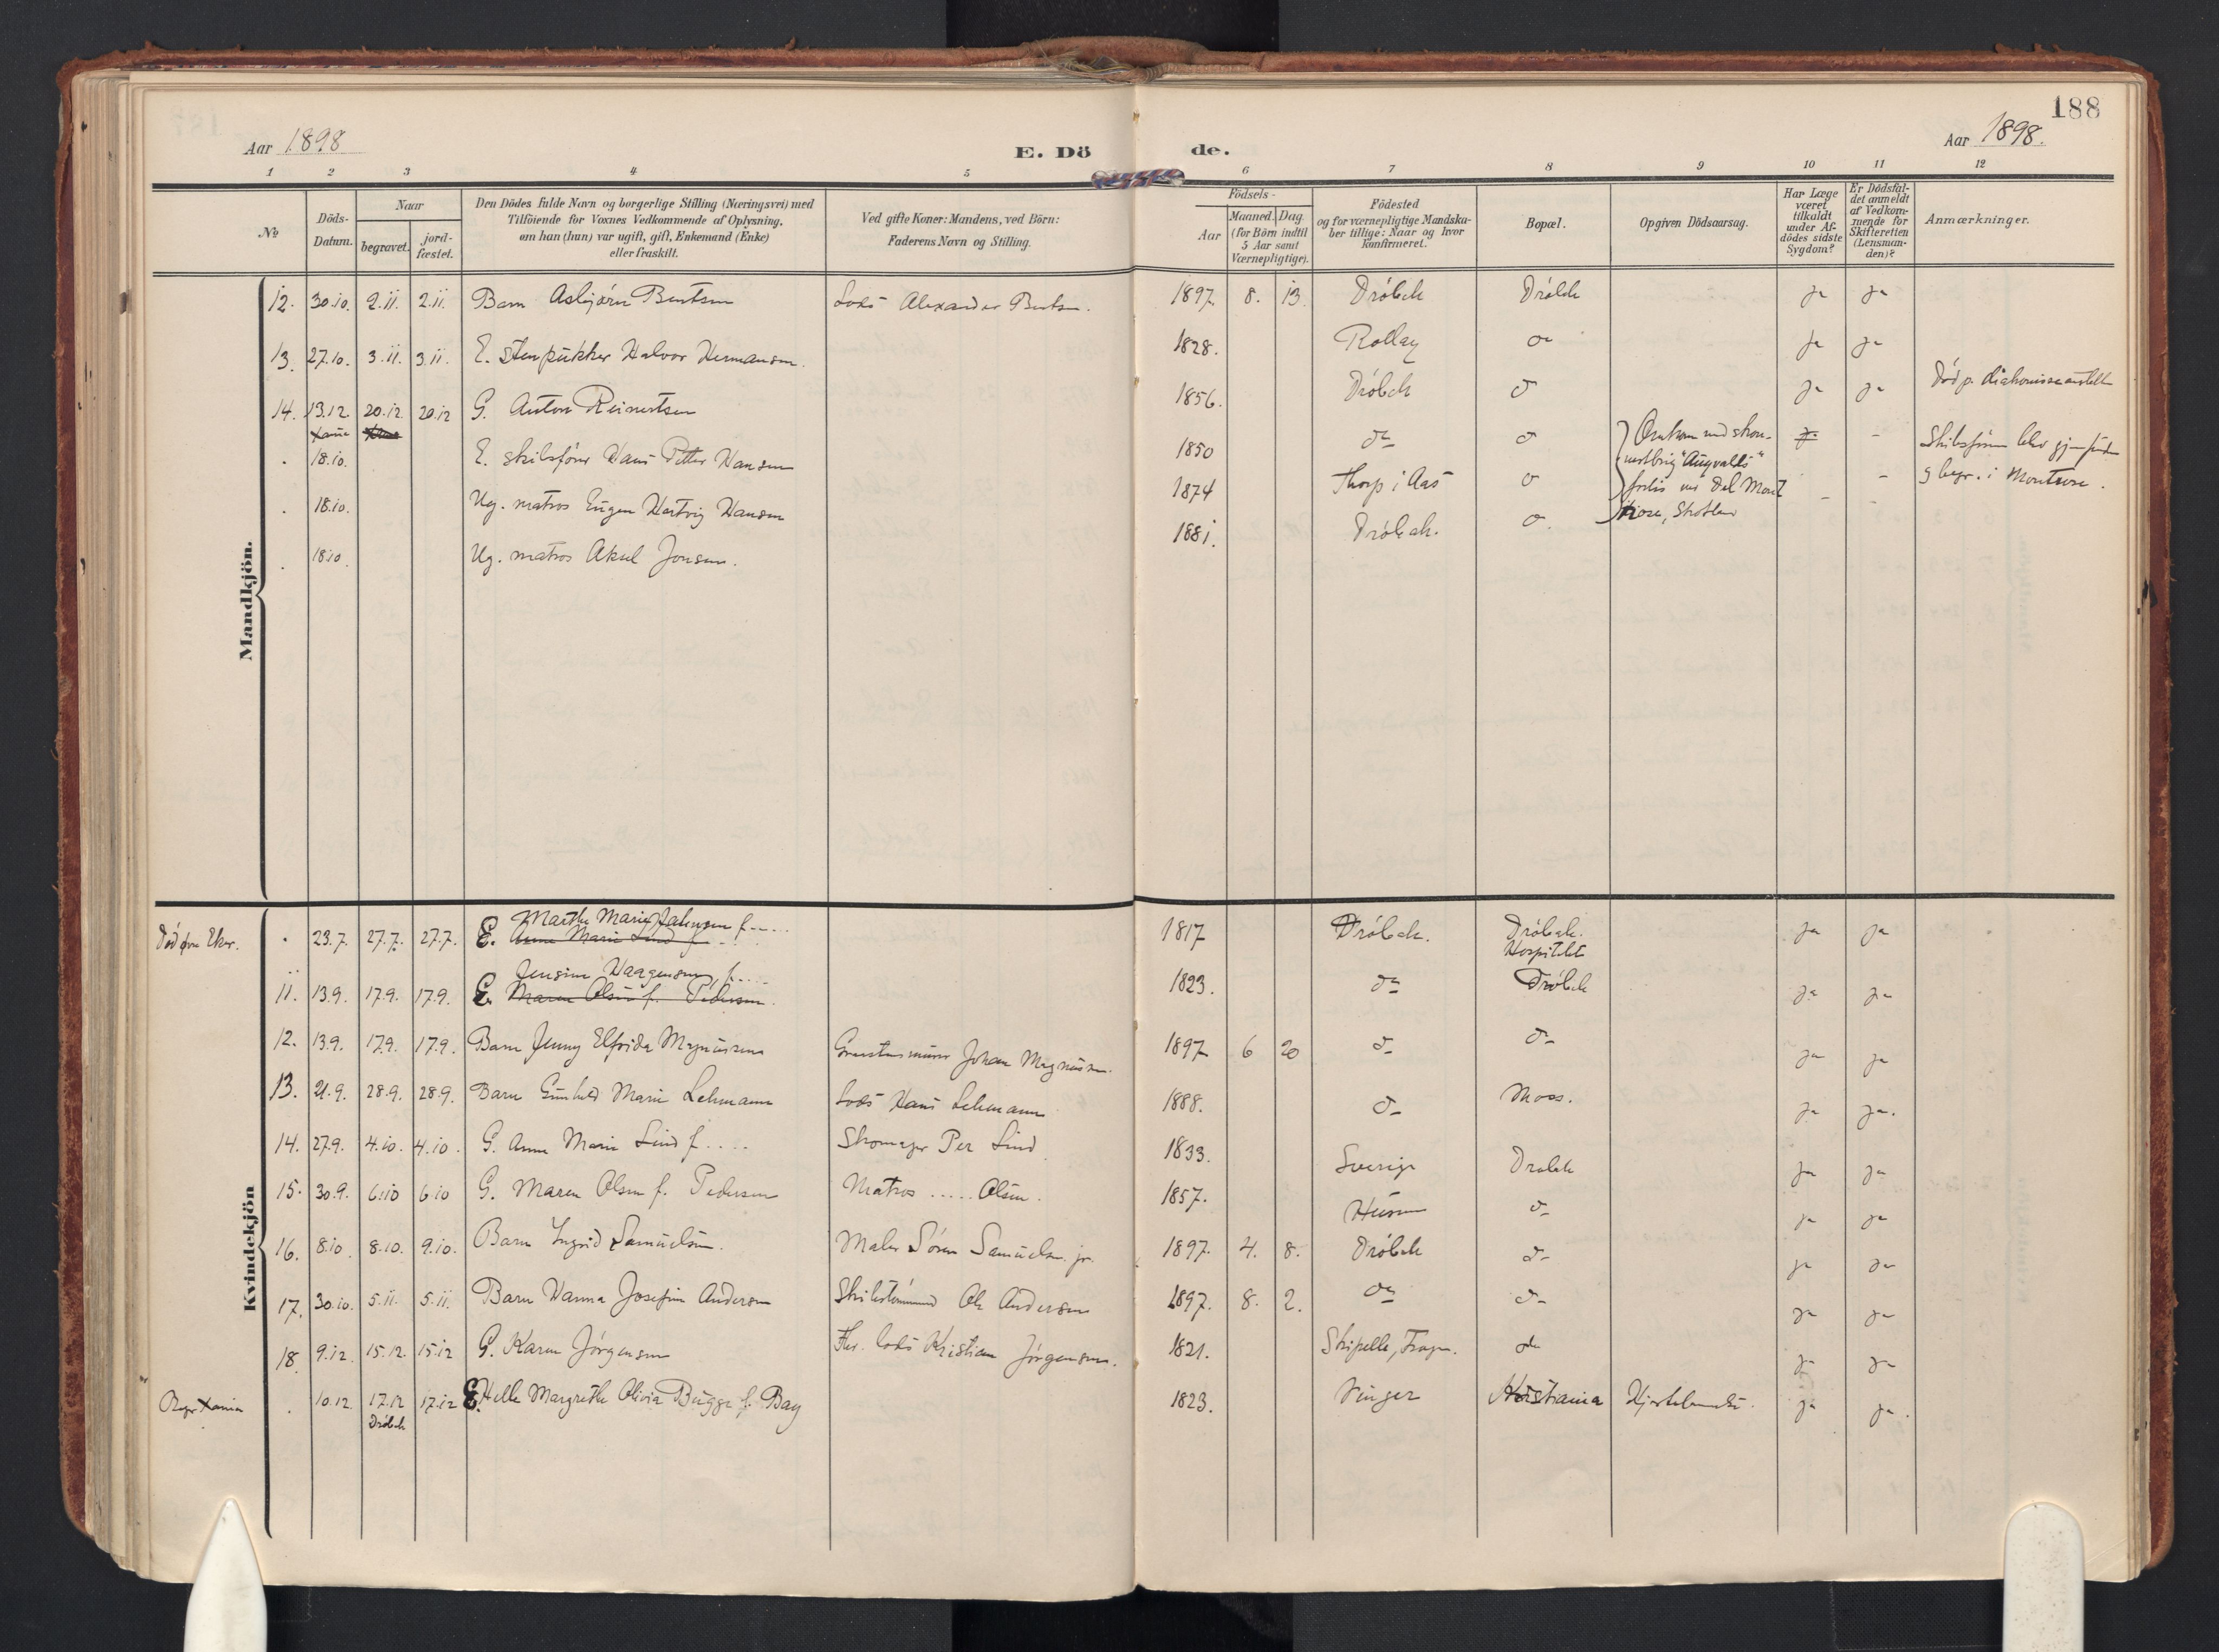 188
Aar 1898
E. Dö de.
Aar 1898.
1 2 3 4 5 6 7 8 9 10 11 12
No
Döds-Datum.
Naar
begravet.
jord-fæstet.
Den Dödes fulde Navn og borgerlige Stilling (Næringsvei) med
Tilföiende for Voxnes Vedkommende af Oplysning,
om han (hun) var ugift, gift, Enkemand (Enke)
eller fraskilt.
Ved gifte Koner: Mandens, ved Börn:
Faderens Navn og Stilling.
Födsels-
Aar
Maaned. Dag.
(for Börn indtil
5 Aar samt
Værnepligtige).
Födested
og for værnepligtige Mandska-
ber tillige: Naar og hvor
konfirmeret.
Bopæl.
Opgiven Dödsaarsag.
Har Læge
været
tilkaldt
under Af-
dödes sidste
Sygdom?
Er Dödsfal-
det anmeldt
af Vedkom-
mende for
Skifteretten
(Lensman-
den)?
Anmærkninger.
Mandkjön.
12. 30.10. 2.11. 2.11. Barn Asbjörn Berntsen Lods Alexander Berntsen. 1897 8. 13. Dröbak Dröbak ja ja
13. 27.10. 3.11. 3.11. E. stenpukker Halvor Hermansen. 1828. Rollag do ja ja
14. 13.12 20.12. 20.12 G. Anton Reinertsen 1856. Dröbak do ja ja Död p. diakonisseanstalt
Xania
. 18.10. E. skibsförer Hans Petter Hansen 1850 do do Omkom med skon-
nertbrig "Augvalds" - Skibsförer blev gjenfunden
. 18.10. Ug. matros Eugen Hartvig Hansen 1874 Thorp i Aas do forlis ved Del Mont - - g begr. i Montrose.
. 18.10. Ug. matros Aksel Jonsen. 1881. Dröbak. do. rose, Skotland
Kvindekjön
Marthe Marie Jahnsen f.....
. 23.7. 27.7. 27.7. E. Anne Marie Lind f.... 1817 Dröbak. Dröbak. Hospitalet ja ja
Jensine Haagensen, f.....
11. 13.9. 17.9. 17.9. E. Maren Olsen f. Pedersen. 1823. do Dröbak ja ja
12. 13.9. 17.9. 17.9. Barn Jenny Elfrida Magnussen Johan Magnussen. 1897 6 20 do do ja ja
13. 21.9. 28.9. 28.9. Barn Gunhild Marie Lehmann Lods Hans Lehmann 1888. do Moss. ja ja.
14. 27.9. 4.10. 4.10. G. Anne Marie Lind f.... Skomager Per Lind 1833. Sverige Drobak ja ja
15. 30.9. 6.10 6.10 G. Maren Olsen f. Pedersen Matros ..... Olsen. 1857. Husum do ja ja
16. 8.10. 8.10. 9.10. Barn Ingrid Samuelsen. Maler Sören Samuelsen jr. 1897. 4. 8. Dröbak do ja ja
17. 30.10. 5.11. 5.11. Barn Hanna Josefine Andersen Skibstömmermand Ole Andersen 1897. 8. 2. do do ja ja
18. 9.12. 15.12. 15.12 G. Karen Jörgensen Fhr. lods Kristian Jörgensen. 1821. Skipelle, Frogn. do ja ja
Begr. Xania . 10.12. 17.12 17.12 E. Helle Margrethe Olivia Bugge f. Bay 1823. Vinger Kristiania ja ja.
Dröbak